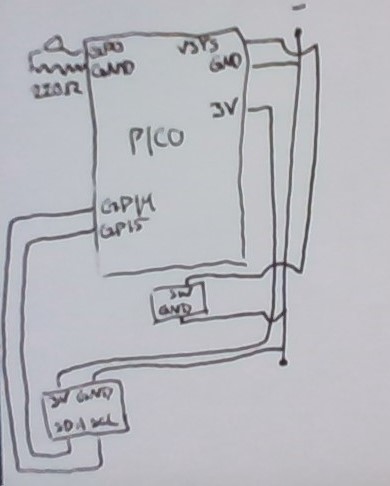 GP0
GND
220Ω
VSYS
GND
3V
PICO
GP14
GP15
5V
GND
3V GND
SDA SCL